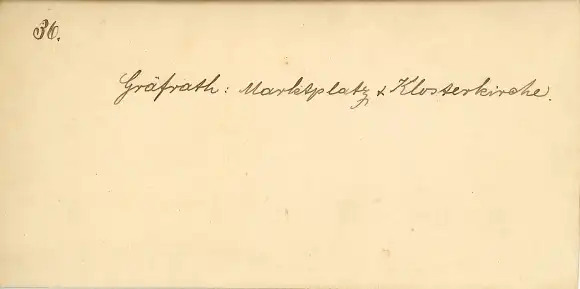 36.
Gräfrath: Marktplatz & Klosterkirche.